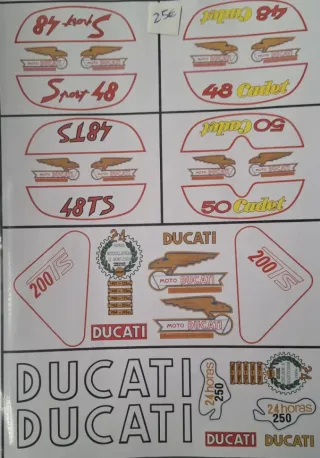 Sport 48
25€
48 Cadet
MOTO DUCATI
MOTO DUCATI
MOTO DUCATI
MOTO DUCATI
Sport 48
48 Cadet
48TS
50 Cadet
MOTO DUCATI
MOTO DUCATI
MOTO DUCATI
MOTO DUCATI
48TS
50 Cadet
24
DUCATI
200TS
200TS
MOTO DUCATI
MOTO DUCATI
DUCATI
DUCATI
DUCATI
24 horas
250
24 horas
250
DUCATI
DUCATI